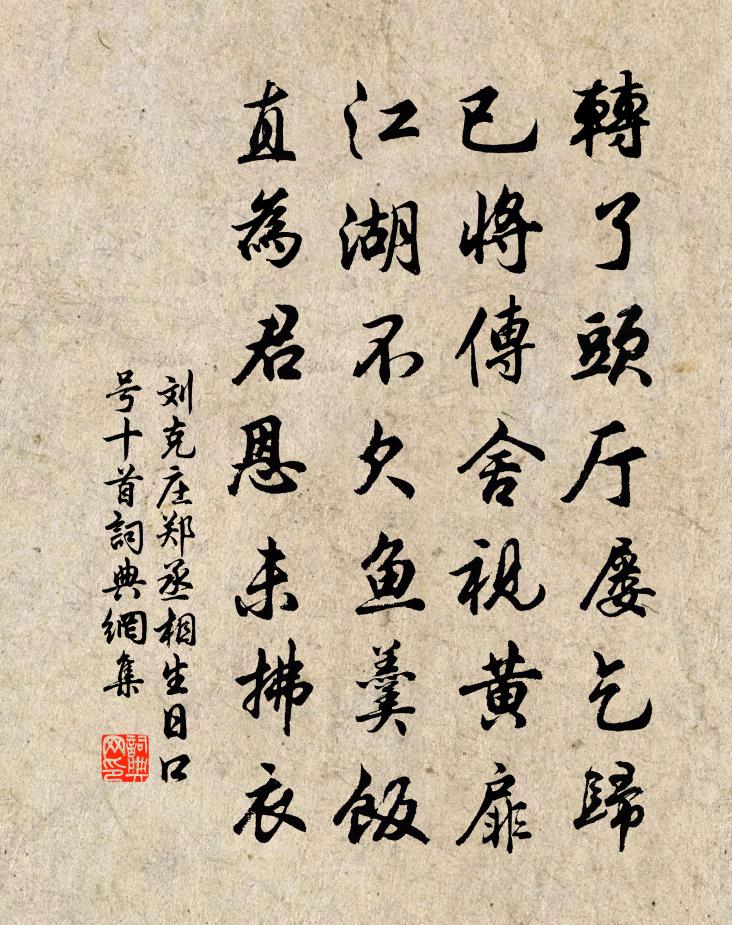 轉了頭厅屡乞歸
已將傳舍視黄扉
江湖不欠鱼羹飯
直為君恩未拂衣
刘克庄郑丞相生日口
号十首詞典網集
詞典网印